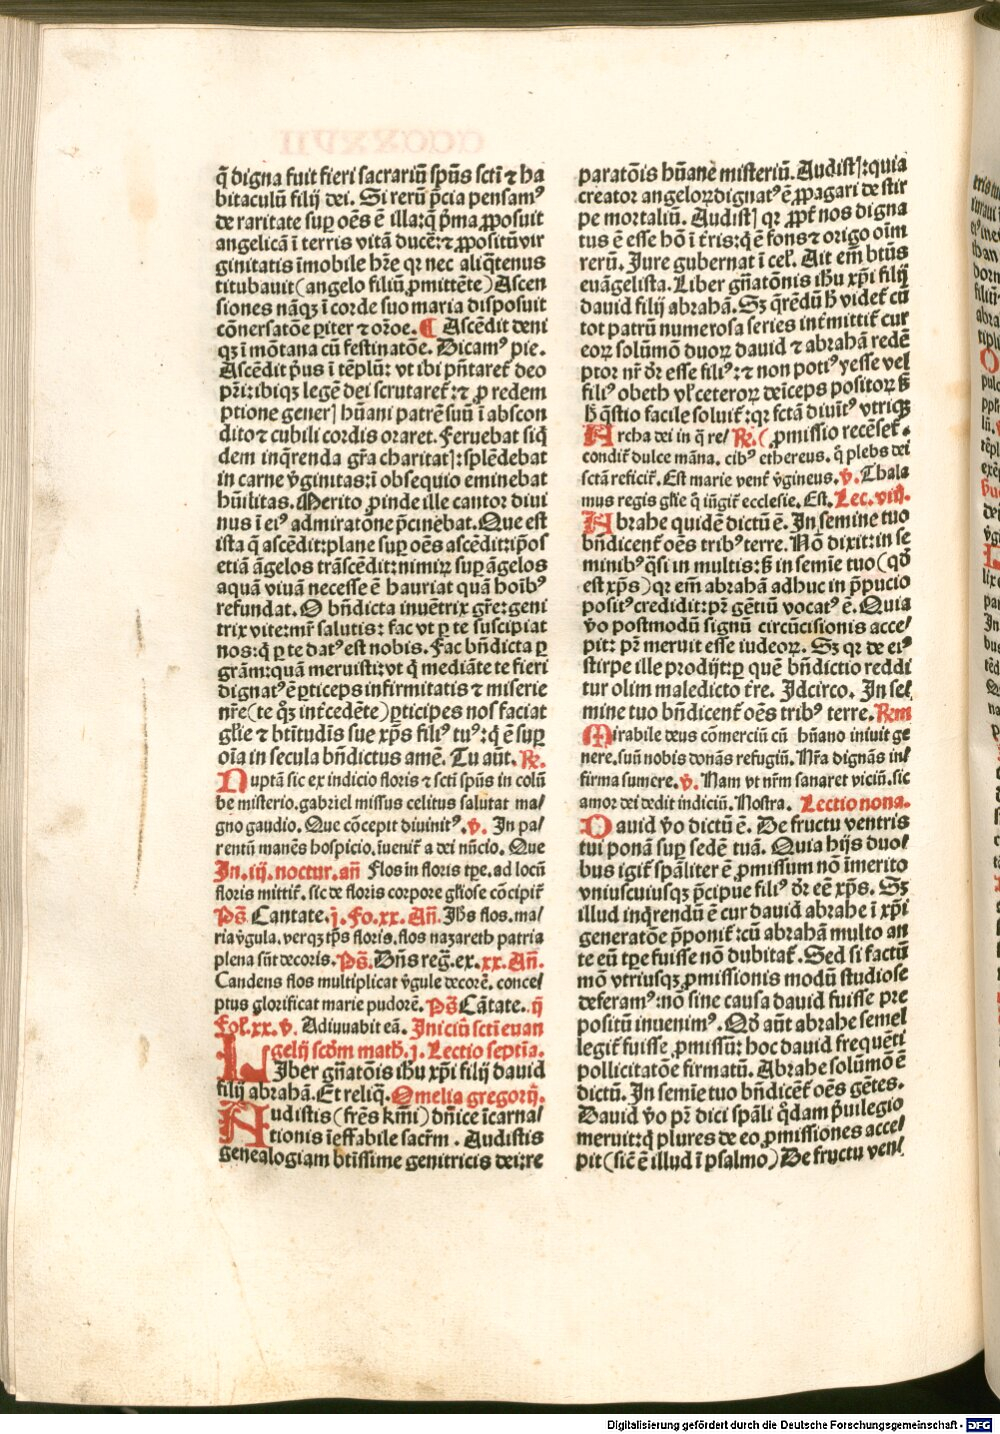 q̄ digna fuit fieri sacrariū spūs scti ⁊ ha
bitaculū filij dei. Si rerū p̄cia pensamꝰ
de raritate suꝑ oēs ē illa:q̄ p̄ma ꝓposuit
angelicā ī terris vitā ducē:⁊ ꝓpositū vir
ginitatis īmobile hr̄e qꝛ nec aliq̄tenus
titubauit(angelo filiū ꝓmittēte)Ascen
siones nāqꝫ ī corde suo maria disposuit
cōnersatōe ꝑiter ⁊ or̄oe. ¶ Ascēdit deni
qꝫ ī mōtana cū festinatōe. Dicamꝰ pie.
Ascēdit p̄us ī tēplū: vt ibi pn̄taret̄ deo
pr̄i:ibiqꝫ legē dei scrutaret̄:⁊ ꝓ redem
ptione generꝭ hūani patrē suū ī abscon
dito ⁊ cubili cordis oraret. Feruebat siq̄
dem inq̄renda gr̄a charitatꝭ:splēdebat
in carne v̄ginitas:ī obsequio eminebat
hūilitas. Merito ꝓinde ille cantor diui
nus ī eiꝰ admiratone p̄cinebat. Que est
ista q̄ ascēdit:plane suꝑ oēs ascēdit:ip̄os
etiā āgelos trāscēdit:nimiꝝ suꝑ āgelos
aquā viuā necesse ē hauriat quā hoībꝰ
refundat. O bn̄dicta inuētrix gr̄e:geni
trix vite:mr̄ salutis: fac vt ꝑ te suscipiat
nos:q̄ ꝑ te datꝰ est nobis. Fac bn̄dicta ꝑ
grām:quām meruisti:vt q̄ mediāte te fieri
dignatꝰ ē ꝑticeps infirmitatis ⁊ miserie
nr̄e(te qꝫ int̄cedēte)ꝑticipes nos faciat
gl̄ie ⁊ bt̄itudīs sue xp̄s filiꝰ tuꝰ:q̄ ē suꝑ
oīa in secula bn̄dictus amē. Tu aūt. ℟.
Nuptā sic ex indicio floris ⁊ scti spūs in colū
be misterio.gabriel missus celitus salutat ma/
gno gaudio. Que cōcepit diuinitꝰ. v̄. In pa/
rentū manēs hospicio. īuenit̄ a dei nūcio. Que
In .iij. noctur. an̄ Flos in floris tp̄e. ad locū
floris mittit̄. sic de floris corpore gl̄iose cōcipit̄
Ps̄. Cantate. j. Fo. xx. An̄. Jhs̄ flos. ma/
ria v̄gula. verqꝫ tp̄s floris. flos nazareth patria
plena sūt decoris. Ps̄. Dn̄s reḡ. ex. xx. An̄.
Candens flos multiplicat v̄gule decorē. conce/
ptus glorificat marie pudorē. Ps̄ Cātate. ij
Fol̄. xx. v̄. Adiuuabit eā. Iniciū scti euan
gelij scd̄m math̄. j. Lectio septīa.
Liber gn̄atōnis ih̄u xp̄i filij dauid
filij abrahā. Et reliq̄. Omelia gregorij.
Audistis(fr̄es km̄i)dn̄ice īcarna/
tionis īeffabile sacr̄m . Audistis
genealogiam bt̄issime genitricis dei:re
paratōis hūane misteriū. Audistꝭ:quia
creator angeloꝝ dignatꝰ ē ꝓpagari de stir
pe mortaliū. Audistꝭ qꝛ ꝓpt̄ nos digna
tus ē esse hō ī t̄ris:q̄ ē fons ⁊ origo oīm
rerū. Jure gubernat ī cel̄. Ait em̄ bt̄us
euāgelista. Liber gn̄atōnis ih̄u xp̄i filij
dauid filij abrahā. Sꝫ q̄rēdū h̄ videt̄ cū
tot patrū numerosa series int̄mittit̄ cur
eoꝝ solūmō duoꝝ dauid ⁊ abrahā redē
ptor nr̄ dr̄ esse filiꝰ:⁊ non potiꝰ yesse vel
filiꝰ obeth vl̓ ceteroꝝ deīceps positoꝝ sꝫ
h̄ q̄stio facile soluit̄:qꝛ fctā diuītꝰ vtriqꝫ
Archa dei in q̄ re/ ℟. ( ꝓmissio recēset̄.
condit̄ dulce māna. cibꝰ ethereus. q̄ plebs dei
sctā reficit̄. Est marie vent̄ v̄gineus. v̄. Thala
mus regis gl̄ie q̄ iūgit̄ ecclesie. Est. Lec. viij.
Abrahe quidē dictū ē. In semine tuo
bn̄dicent̄ oēs tribꝰ terre. Nō dixit:in se
minibꝰ q̄si in multis:sꝫ in semīe tuo(qd̄
est xp̄s)qꝛ em̄ abrahā adhuc in p̄pucio
positꝰ credidit:pr̄ gētiū vocatꝰ ē. Quia
v̄o postmodū signū circūcisionis acce/
pit: pr̄ meruit esse iudeoꝝ. Sꝫ qꝛ de eiꝰ
stirpe ille prodijt:ꝑ quē bn̄dictio reddi
tur olim maledicto t̄re. Idcirco. In se/
mine tuo bn̄dicent̄ oēs tribꝰ terre. Rm̄
Mirabile deus cōmerciū cū hūano iniuit ge
nere. suū nobis donās refugiū. Nr̄a dignās in/
firma sumere. v̄. Nam vt nr̄m sanaret viciū. sic
amor dei dedit indiciū. Nostra. Lectio nona.
Dauid v̄o dictū ē. De fructu ventris
tui ponā suꝑ sedē tuā. Quia hijs duo/
bus igit̄ spāliter ē ꝓmissum nō īmerito
vniuscuiusqꝫ p̄cipue filiꝰ dr̄ eē xp̄s. Sꝫ
illud inq̄rendū ē cur dauid abrahe ī xp̄i
generatōe p̄ponit̄:cū abrahā multo an
te eū tp̄e fuisse nō dubitat̄. Sed si factū
mō vtriusqꝫ ꝓmissionis modū studiose
deferamꝰ:nō sine causa dauid fuisse pre
positū inuenimꝰ. Qd̄ aūt abrahe semel
legit̄ fuisse ꝓmissū: hoc dauid frequēti
pollicitatōe firmatū. Abrahe solūmō ē
dictū. In semīe tuo bn̄dicēt̄ oēs gētes.
Dauid v̄o pr̄ dici spāli q̄dam p̄uilegio
meruit:q̄ plures de eo ꝓmissiones acce/
pit(sic̄ ē illud ī psalmo)De fructu ven/
Digitalisierung gefördert durch die Deutsche Forschungsgemeinschaft - DFG